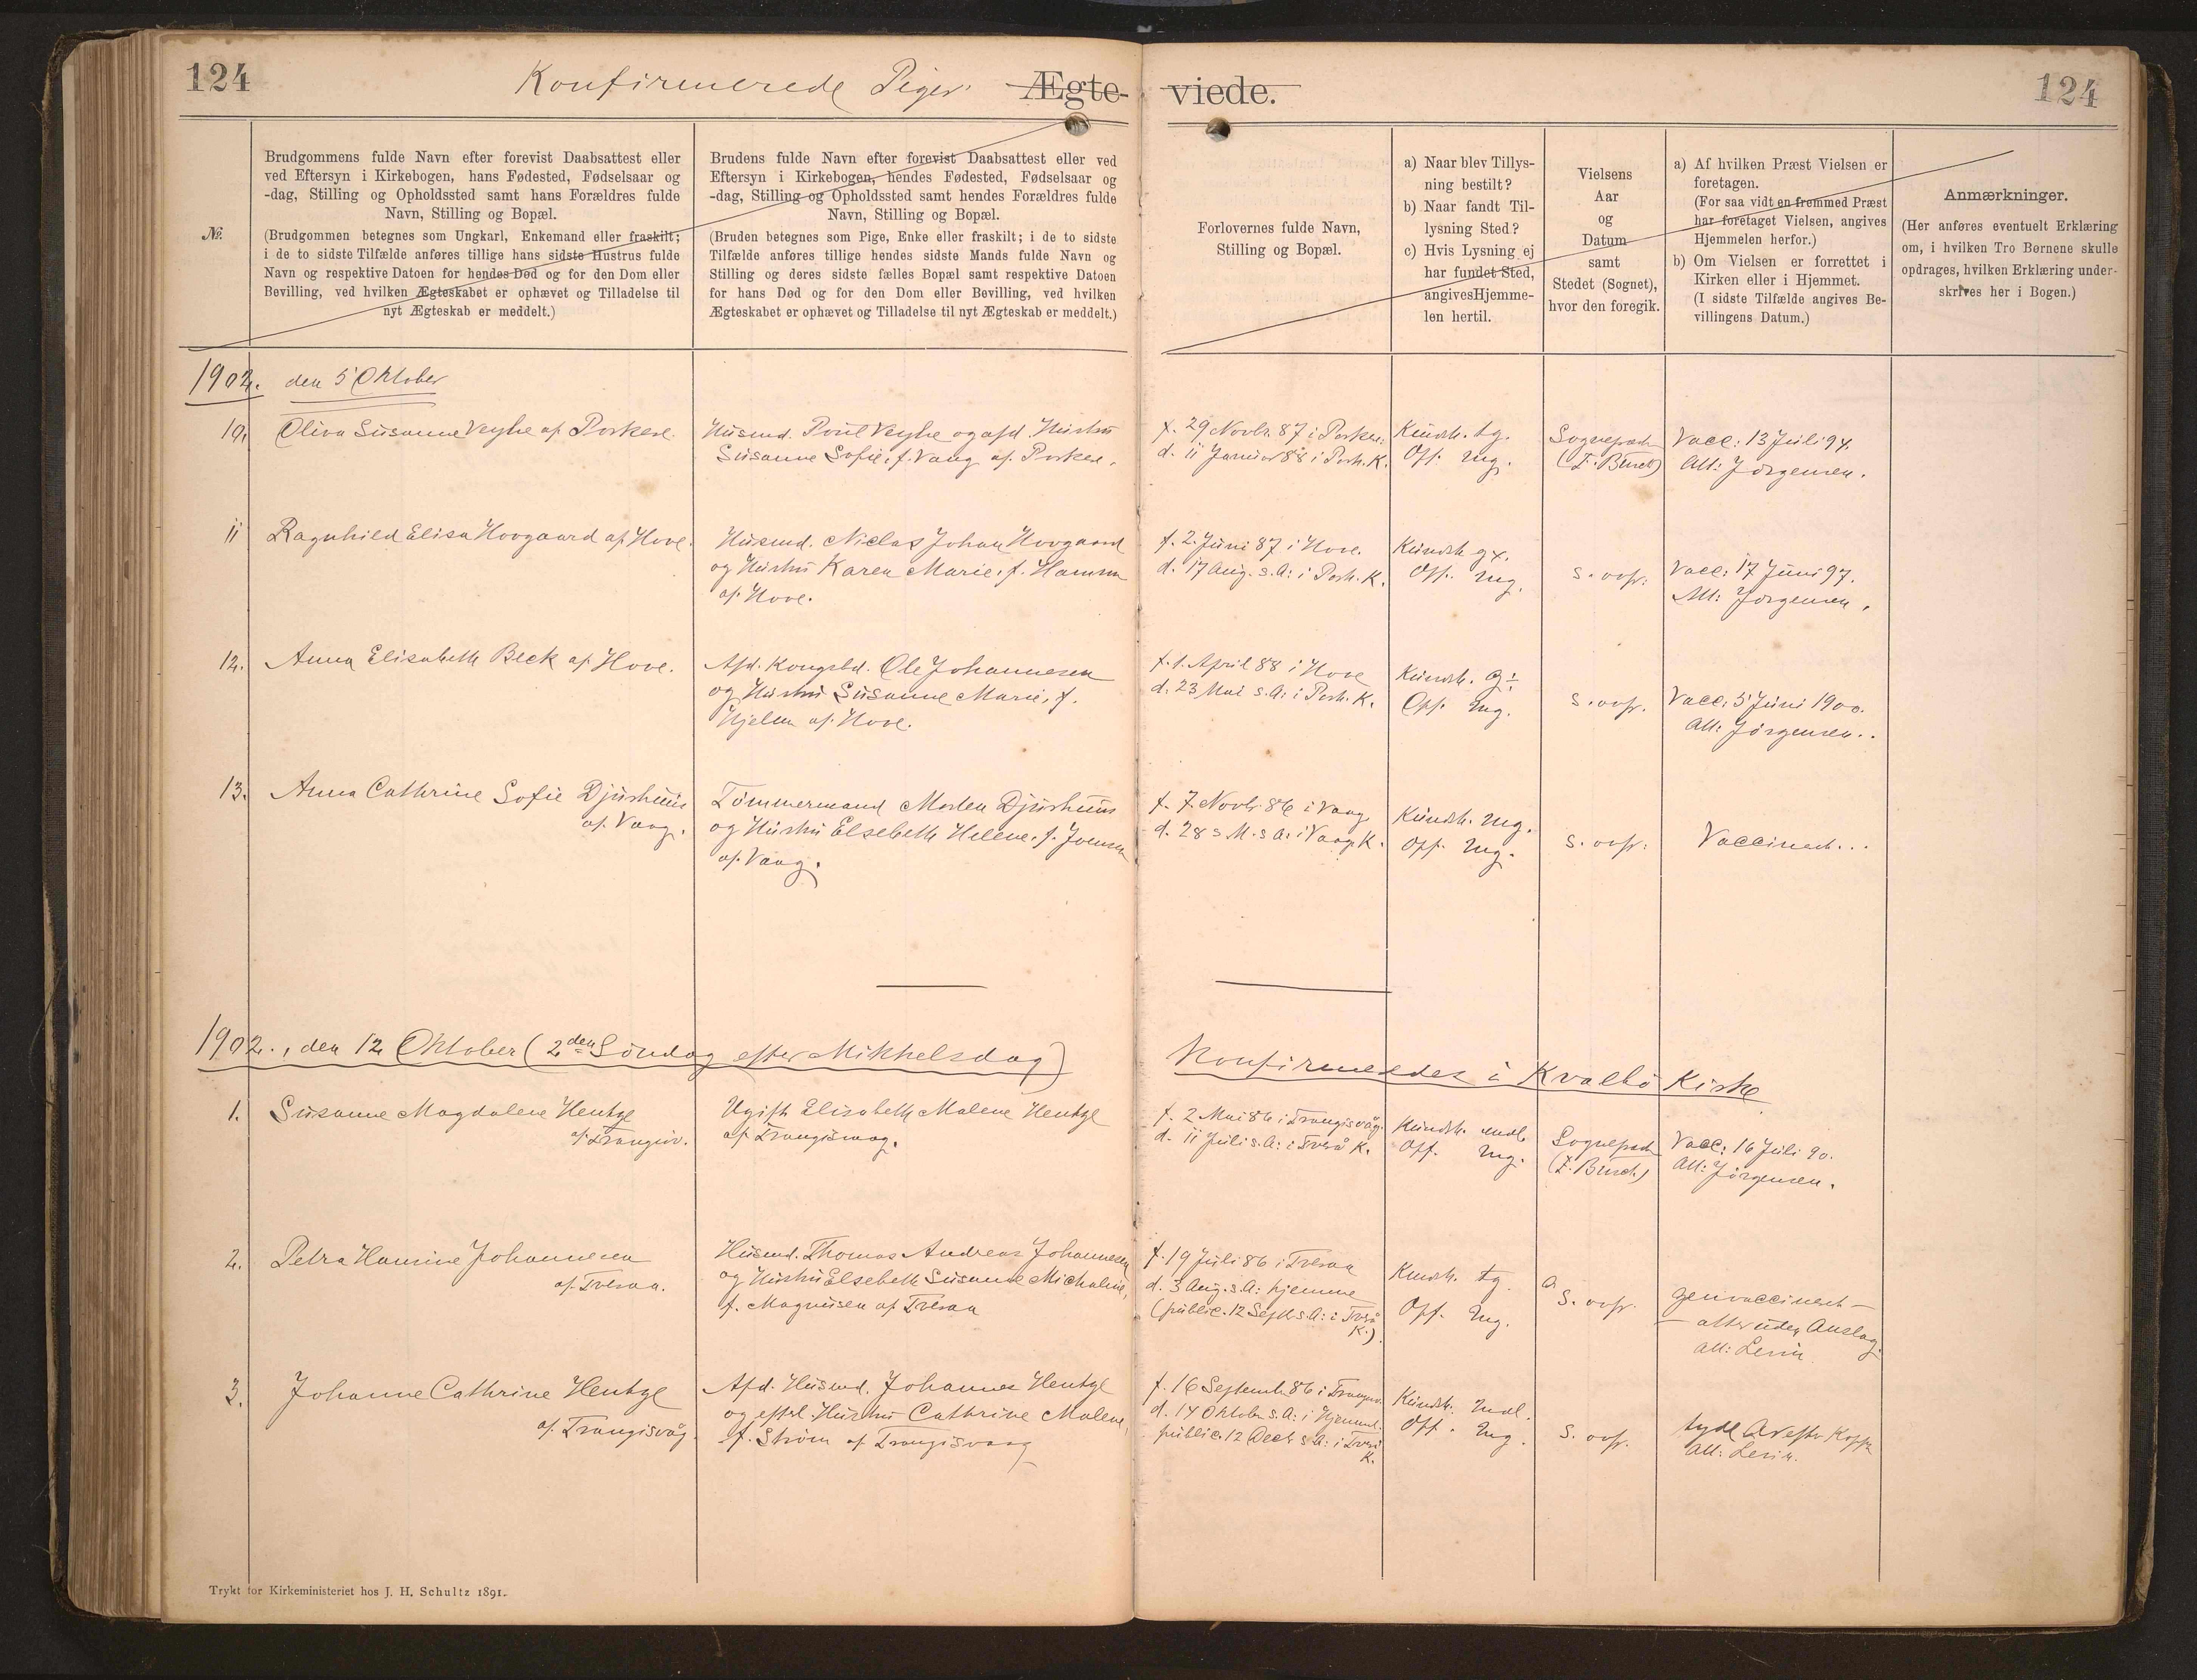 124
Konfirmerede Piger
Ægte-
viede.
124
No.
Brudgommens fulde Navn efter forevist Daabsattest eller
ved Eftersyn i Kirkebogen, hans Fødested, Fødselsaar og
-dag, Stilling og Opholdssted samt hans Forældres fulde
Navn, Stilling og Bopæl.
(Brudgommen betegnes som Ungkarl, Enkemand eller fraskilt;
i de to sidste Tilfælde anføres tillige hans sidste Hustrus fulde
Navn og respektive Datoen for hendes Død og for den Dom eller
Bevilling, ved hvilken Ægteskabet er ophævet og Tilladelse til
nyt Ægteskab er meddelt.)
Brudens fulde Navn efter forevist Daabsattest eller ved
Eftersyn i Kirkebogen, hendes Fødested, Fødselsaar og
-dag, Stilling og Opholdssted samt hendes Forældres fulde
Navn, Stilling og Bopæl.
(Bruden betegnes som Pige, Enke eller fraskilt; i de to sidste
Tilfælde anføres tillige hendes sidste Mands fulde Navn og
Stilling og deres sidste fælles Bopæl samt respektive Datoen
for hans Død og for den Dom eller Bevilling, ved hvilken
Ægteskabet er ophævet og Tilladelse til nyt Ægteskab er meddelt.)
Forlovernes fulde Navn,
Stilling og Bopæl.
a) Naar blev Tillys-
ning bestilt?
b) Naar fandt Til-
lysning Sted?
c) Hvis Lysning ej
har fundet Sted,
angives Hjemme-
len hertil.
Vielsens
Aar
og
Datum
samt
Stedet (Sognet),
hvor den foregik.
a) Af hvilken Præst Vielsen er
foretagen.
(For saa vidt en fremmed Præst
har foretaget Vielsen, angives
Hjemmelen herfor.)
b) Om Vielsen er forrettet i
Kirken eller i Hjemmet.
(I sidste Tilfælde angives Be-
villingens Datum.)
Anmærkninger.
(Her anføres eventuelt Erklæring
om, i hvilken Tro Børnene skulle
opdrages, hvilken Erklæring under-
skrives her i Bogen.)
1902. den 5 Oktober
10. Oliva Susanne Veyhe af Porkere.
Husmd. Poul Veyhe og afd. Hustru
Susanne Sofie, f. Vang af Porkere.
f. 29 Novbr. 87 i Porkere.
d. 11 Januar 88 i Pork. K.
Kundsk. tg.
Opf. mg.
Sognepræst
(F. Busch)
Vacc: 13 Juli 94.
Att: Jørgensen.
11 Ragnhild Elisa Hovgaard af Hove.
Husmd. Niclas Johan Hovgaard
og Hustru Karen Marie, f. Hammer
af Hove.
f. 2 Juni 87 i Hove.
d. 17 Aug. s. A. i Pork. K.
Kundsk. gx.
Opf. mg.
s. ovf.
Vacc: 17 Juni 97.
Att: Jørgensen.
12. Anna Elisabeth Beck af Hove.
Afd. Kongsbd. Ole Johannesen
og Hustru Susanne Marie, f.
Hjelm af Hove.
f. 1. April 88 i Hove
d. 23 Mai s. A. i Pork. K.
Kundsk. g÷
Opf. mg.
s. ovf.
Vacc: 5 Juni 1900.
Att: Jørgensen..
13. Anna Cathrine Sofie Djurhuus
af Vaag.
Tømmermand Morten Djurhuus
og Hustru Elsebeth Helene, f. Joensen
af Vaag.
f. 7. Novbr 86 i Vaag
d. 28 s. M. s A. i Vaag K.
Kundsk. mg.
Opf. mg.
s. ovf.
Vaccineret...
1902., den 12 Oktober (2den Søndag efter Mikkelsdag)
Konfirmeredes i Kvalbø Kirke
1. Susanne Magdalene Hentze
af Trangisv.
Ugift Elisabeth Malene Hentze
af Trangisvaag.
f. 2 Mai 86 i Trangisvåg.
d. 11 Juli s. A. i Tverå K.
Kundsk. mdl.
Opf. mg.
Sognepræst
(F. Busch)
Vacc: 16 Juli 90.
Att: Jørgensen.
2. Petra Hansine Johannesen
af Tveraa.
Husmd. Thomas Andreas Johannesen
og Hustru Elsebeth Susanne Micheline,
f. Magnusen af Tveraa
f. 19 Juli 86 i Tveraa
d. 3 Aug. s. A. hjemme
(public. 12 Septbr s. A. i Tverå
K.)
Kundsk. tg
Opf. mg.
s. ovf.
genvaccineret —
— atter uden Anslag.
Att: Lerin
3. Johanne Cathrine Hentze
af Trangisvåg
Afd. Husmd. Johannes Hentze
og efterl. Hustru Cathrine Malene,
f. Strøm af Trangisvaag
f. 16 Septemb. 86 i Trangisv.
d. 14 Oktober s. A. i Hjemmet
public. 12 Decb s A. i Tverå
K.
Kundsk. mdl.
Opf. mg.
s. ovf.
Att: Lerin.
Trykt for Kirkeministeriet hos J. H. Schultz 1891.